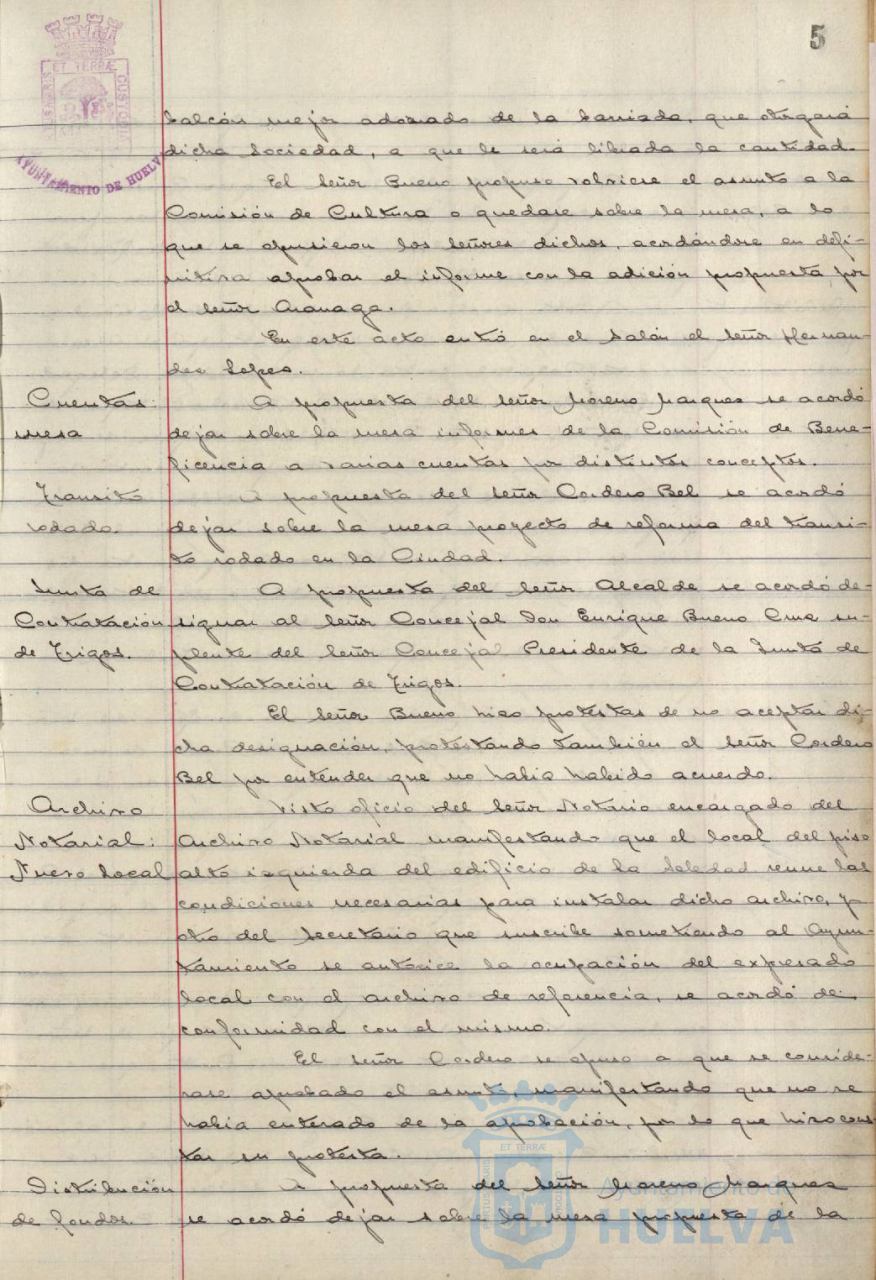 5
ET TERRÆ
CUSTODIA
AYUNTAMIENTO DE HUELVA
balcón mejor adornado de la barriada, que otorgará
dicha Sociedad, a que le será librada la cantidad.
El Señor Bueno propuso volviese el asunto a la
Comisión de Cultura o quedase sobre la mesa, a lo
que se opusieron los Señores dichos, acordándose en defi-
nitiva aprobar el informe con la adición propuesta por
el Señor Aranaga.
En este acto entró en el Salón el Señor Hernan-
dez Lopez.
Cuentas:
mesa
A propuesta del Señor Moreno Marquez se acordó
dejar sobre la mesa informes de la Comisión de Bene-
ficencia a varias cuentas por distintos conceptos.
Transito
rodado.
A propuesta del Señor Cordero Bel se acordó
dejar sobre la mesa proyecto de reforma del transi-
to rodado en la Ciudad.
Junta de
Contratación
de Trigos.
A propuesta del Señor Alcalde se acordó de-
signar al Señor Concejal Don Enrique Bueno Cruz su-
plente del Señor Concejal Presidente de la Junta de
Contratación de Trigos.
El Señor Bueno hizo protestas de no aceptar di-
cha designación, protestando también el Señor Cordero
Bel por entender que no había habido acuerdo.
Archivo
Notarial:
Nuevo local
Visto oficio del Señor Notario encargado del
Archivo Notarial manifestando que el local del piso
alto izquierda del edificio de la Soledad reune las
condiciones necesarias para instalar dicho archivo, y
otro del Secretario que suscribe sometiendo al Ayun-
tamiento se autorice la ocupación del expresado
local con el archivo de referencia, se acordó de
conformidad con el mismo.
El Señor Cordero se opuso a que se conside-
rase aprobado el asunto, manifestando que no se
había enterado de la aprobación, por lo que hizo cons-
tar su protesta.
Distribución
de fondos.
A propuesta del Señor Moreno Marquez
se acordó dejar sobre la mesa propuesta de la
ET TERRÆ
Ayuntamiento de
HUELVA